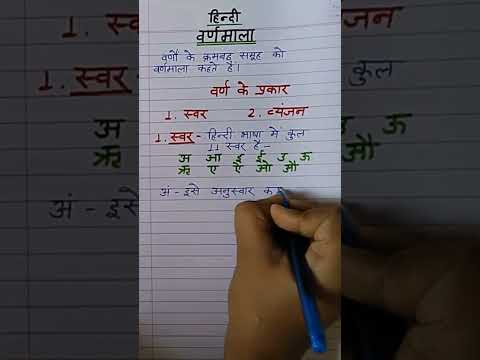 हिन्दी
वर्णमाला
वर्णों के क्रमबद्ध समूह को
वर्णमाला कहते है।
वर्ण के प्रकार
1. स्वर 2. व्यंजन
1. स्वर - हिन्दी भाषा मे कुल
11 स्वर है:-
अ आ इ ई उ ऊ
ऋ ए ऐ ओ औ
अं - इसे अनुस्वार क